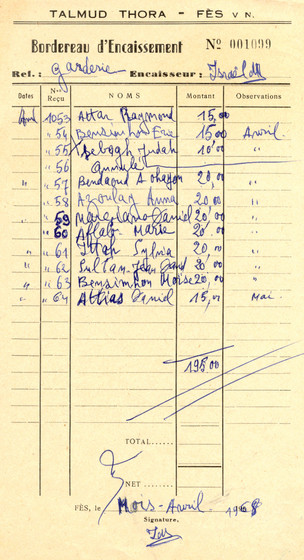 TALMUD THORA - FÈS V N.
Bordereau d'Encaissement Nº 001099
Ref. : garderie Encaisseur : Israël
Dates Nos Reçu NOMS Montant Observations
Avril 1053 Attar Raymond 15,00
" 54 Bensimhon Eric 15,00 Avril
" 55 Judah 10,00 "
" 56 annulé
" 57 Bendaoud 20,00 "
" 58 Azoulay Anna 20,00 "
59 Daniel 20,00 "
60 Aflalo Marie 20,00 "
" 61 Ittah Sylvia 20,00 "
" 62 Sultan Jean 20,00 "
" 63 Bensimhon Moïse 20,00 "
" 64 Attias Daniel 15,00 Mai
195,00
TOTAL......
NET........
FÈS, le Mois-Avril 1968
Signature,